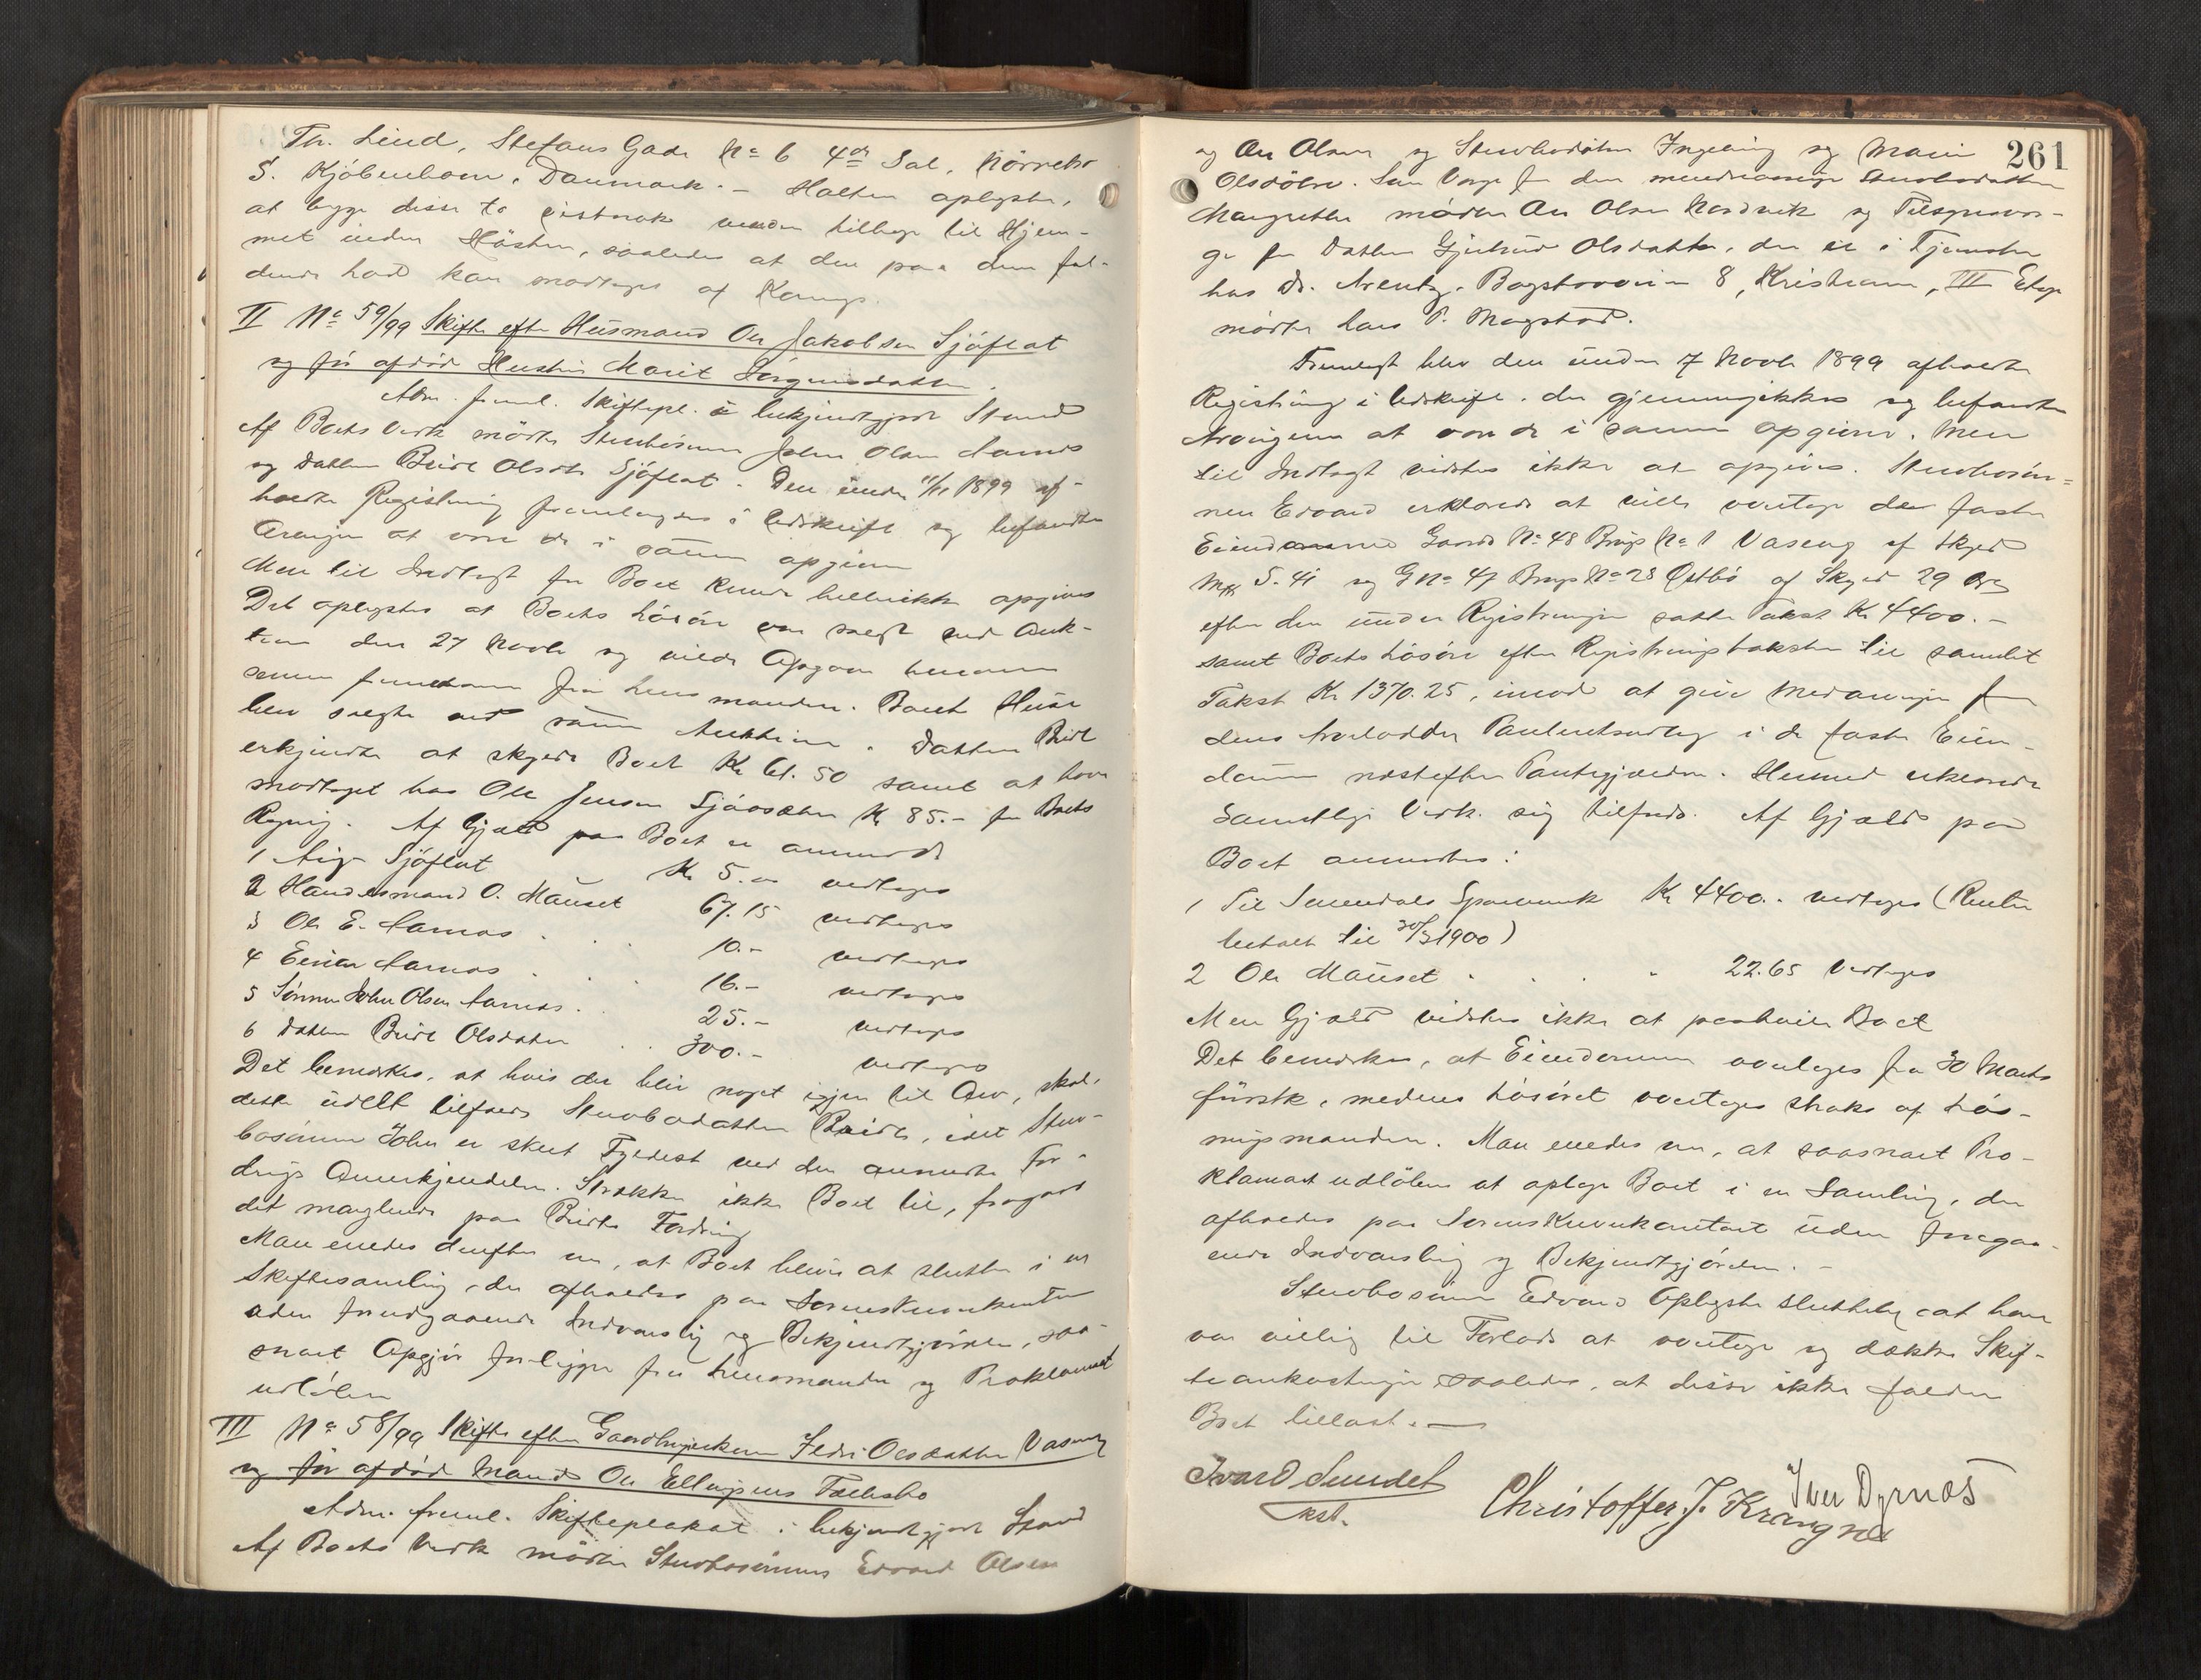 Th. Lind, Stefans Gade No 6 4de Sal, Nörrebro
S. Kjöbenhavn, Danmark. – Halten oplyste,
at begge disse to vistnok vender tilbage til Hjem-
met inden Hösten, saaledes at den paa dem fal-
dende Lod kan modtages af
II No 59/99 Skifte efter Husmand Ole Jakobsen Sjöflot
og för afdöd Hustru Marit Jörgensdatter.
Adm. freml. Skiftepl. i bekjendtgjort Stand
Af Boets Vedk mödte Stervbösönnen John Olsen Aarnes
og Datter Beret Olsdtr Sjöflot. Den under 11/11 1899 af-
holdte Registrering fremlagdes i Udskrift og befandtes
Arvingerne at være de i samme opgivne
Mere til Indtægt for Boet kunde hellerikke opgives
Det oplystes at Boets Lösöre var solgt ved Auk-
tion den 27 Novbr og vilde Opgjør herover
senere fremkomme fra Lensmanden. Boets Huse
blev solgte ved samme Auktion. Datter Beret
erkjendte at skylde Boet Kr 61.50 samt at have
modtaget hos Ole Jensen Sjöosæter Kr 85.– for Boets
Regning. Af Gjæld paa Boet er anmeldt
1 Sjöflot Kr 5.00 vedtages
2 Handelsmand O. Mauset 67.15 vedtages
3 Ole E. Aarnes . . . 10.– vedtages
4 Einar Aarnes . . . 16.– vedtages
5 Sönnen John Olsen Aarnes . . 25.– vedtages
6 Datter Beret Olsdatter . . 300.– vedtages
Det bemærkes, at hvis der blir noget igjen til Arv, skal
dette udelt tilfalde Stervbodatter Beret, idet Sterv-
bosönnen John er skeet Fyldest ved den anmeldte For-
drings Anerkjendelse. Strækker ikke Boet til, fragaar
det manglende paa Berets Fordring
Man enedes derefter om, at Boet bliver at slutte i en
Skiftesamling, der afholdes paa Sorenskriverkontoret
uden forudgaaende Indvarsling og Bekjendtgjörelse, saa-
snart Opgjör foreligger fra Lensmanden og Proklamat
udlöber
III No 58/99 Skifte efter Gaardbrugerkone Ildri Olsdatter Vaseng
og för afdöd Mand Ole Ellingsens Fællesbo
Adm. freml. Skifteplakat i bekjendtgjort Stand
Af Boets Vedk mödte Stervbosönnerne Edvard Olsen
261
og Ole Olsen og Stervbodötre Ingeborg og Marie
Olsdötre. Som Verge for den mindreaarige Stervbodatter
Margrethe mödte Ole Olsen Nordvik og Tilsynsver-
ge for Datter Gjertrud Olsdatter, der er i Tjeneste
hos Dr. Arentz, Bogstadveien 8, Kristiania, III Etage
mödte Lars P. Magstad.
Fremlagt blev den under 7 Novbr 1899 afholdte
Registrering i Udskrift, der gjennemgikkes og befandtes
Arvingerne at være de i samme opgivne. Mere
til Indtægt vidstes ikke at opgives. Stervbosön-
nen Edvard erklærede at ville overtage de faste
Eiendomme Gaards No 48 Brugs No 1 Vaseng af Skyld
Mrk 5.41 og G No 47 Brugs No 28 Ostbö af Skyld 29 Öre
efter den under Registreringen satte Takst Kr 4400.–
samt Boets Lösöre efter Registreringstaksten til samlet
Takst Kr 1370.25, imod at give Medarvinger for
deres Arvelodder Panteudlæg i de faste Eien-
domme næstefter Pantegjælden. Hermed erklærede
Samtlige Vedk. sig tilfreds. Af Gjæld paa
Boet anmeldtes:
1 Til Surendals Sparebank Kr 4400.– vedtages (Renter
betalt til 30/3 1900)
2 Ole Mauset . . . 22.65 vedtages
Mere Gjæld vidstes ikke at paahvile Boet
Det bemærkes, at Eiendommen overtages fra 30 Marts
förstk., medens Lösöret overtages straks af Lös-
ningsmanden. Man enedes om, at saasnart Pro-
klamaet udlöber at optage Boet i en Samling, der
afholdes paa Sorenskriverkontoret uden foregaa-
ende Indvarsling og Bekjendtgjörelse. –
Stervbosönnen Edvard oplyste sluttelig at han
var villig til Forlods at overtage og dække Skif-
teomkostninger saaledes, at disse ikke falder
Boet tillast. –
Ivar O Sundet
kst.
Christoffer J. Krangnæs
Iver Dyrnæs